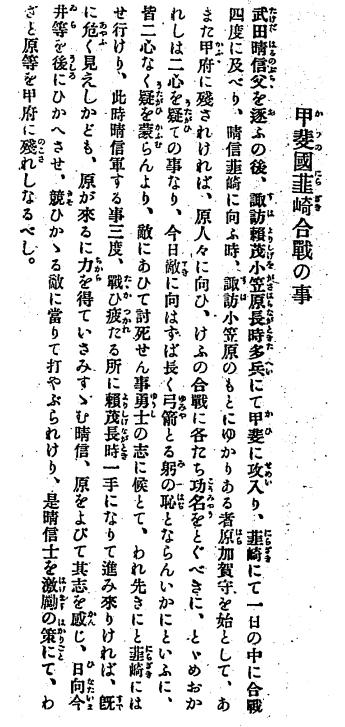 甲斐國韮崎合戰の事
武田晴信父を逐ふの後、諏訪頼茂小笠原長時多兵にて甲斐に攻入り、韮崎にて一日の中に合戰
四度に及べり、晴信韮崎に向ふ時、諏訪小笠原のもとにゆかりある者原加賀守を始として、あ
また甲府に殘されければ、原人々に向ひ、けふの合戰に各たち功名をとぐべきに、とゞめおか
れしは二心を疑ての事なり、今日敵に向はずば長く弓箭とる躬の恥とならんいかにといふに、
皆二心なく疑を蒙らんより、敵にあひて討死せん事勇士の志に候とて、われ先きにと韮崎には
せ行けり、此時晴信軍する事三度、戰ひ疲たる所に頼茂長時一手になりて進み來りければ、既
に危く見えしかども、原が來るに力を得ていさみすゝむ晴信、原をよびて其志を感じ、日向今
井等を後にひかへさせ、競ひかゝる敵に當りて打やぶられけり、是晴信士を激勵の策にて、わ
ざと原等を甲府に殘れしなるべし。